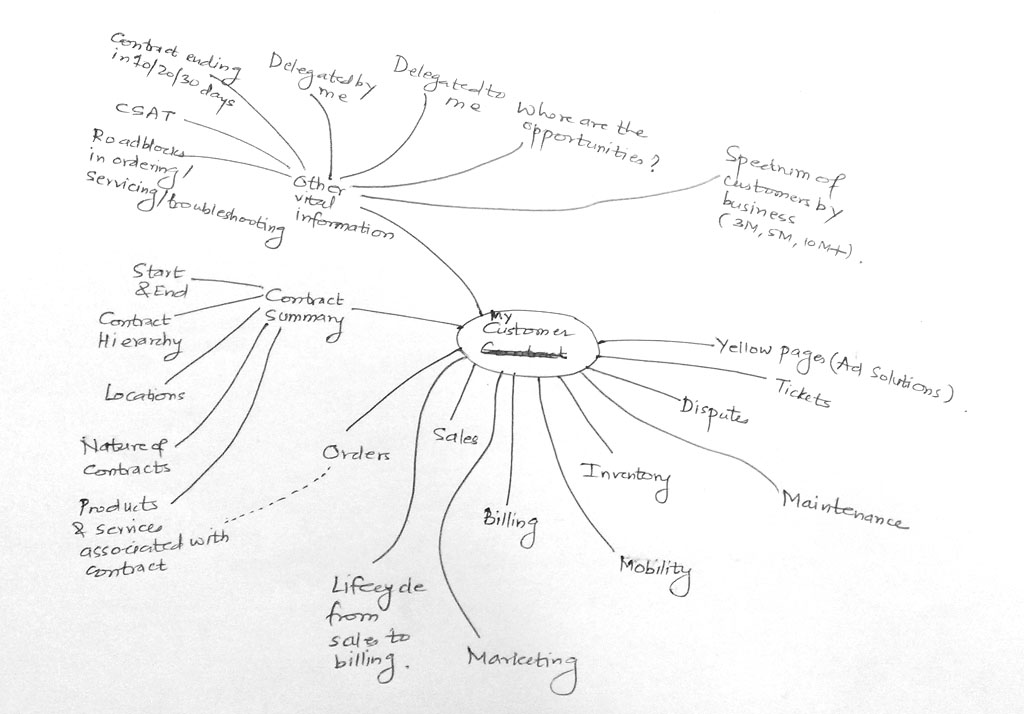 Contract ending
in 10/20/30 days
Delegated by
me
Delegated to
me
Where are the
opportunities?
CSAT
Roadblocks
in ordering/
servicing/troubleshooting
Other
vital
information
Spectrum of
customers by
business
(3M, 5M, 10M+).
Start
& End
Contract
Hierarchy
Locations
Nature of
contracts
Products
& services
associated with
contract
Contract
Summary
My
Customer
Yellow pages (Ad Solutions).
Tickets
Disputes
Maintenance
Inventory
Mobility
Billing
Marketing
Sales
Orders
Lifecycle
from
sales to
billing.